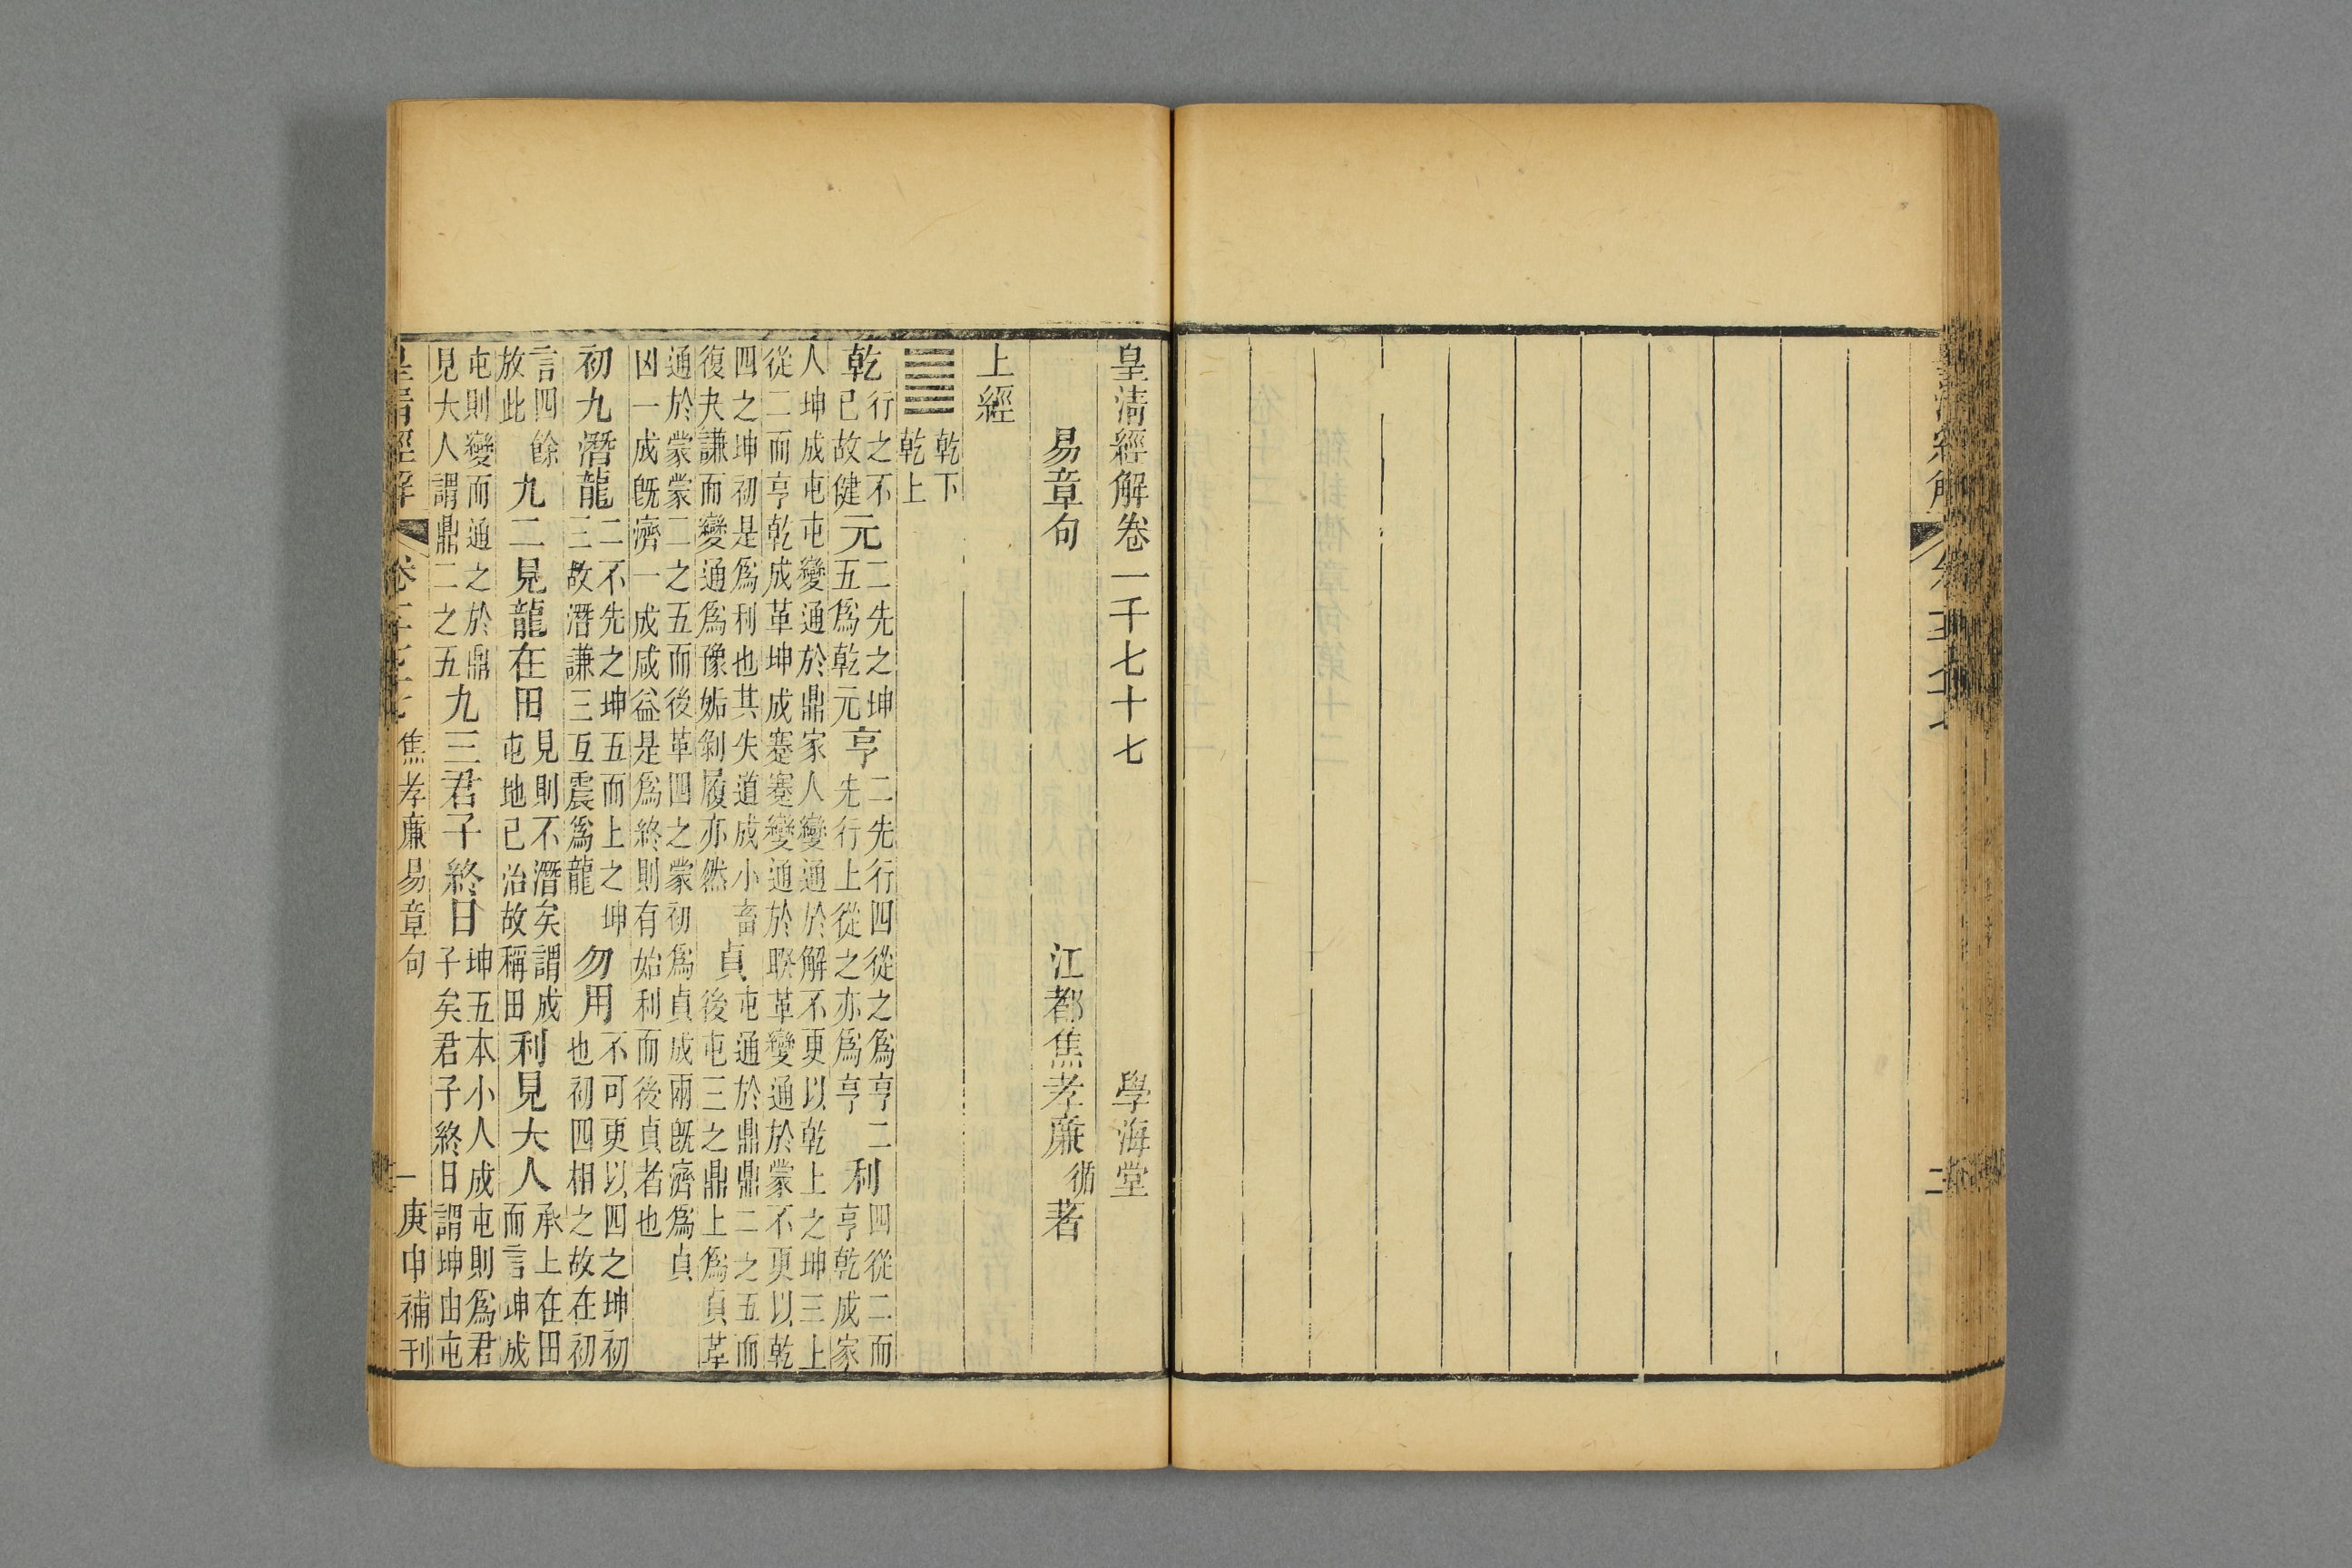 二
皇清經解卷一千七十七 學海堂
易章句 江都焦孝廉循著
上經
䷀ 乾下 乾上
乾 行之不 已故健 元 二先之坤 五爲乾元 亨 二先行四從之爲亨二 先行上從之亦爲亨 利 四從二而 亨乾成家
人坤成屯屯變通於鼎家人變通於解不更以乾上之坤三上
從二而亨乾成革坤成蹇蹇變通於睽革變通於蒙不更以乾
四之坤初是爲利也其失道成小畜 復夬謙而變通爲豫姤剝履亦然 貞 屯通於鼎鼎二之五而 後屯三之鼎上爲貞革
通於蒙蒙二之五而後革四之蒙初爲貞成兩旣濟爲貞
凶一成旣濟一成咸益是爲終則有始利而後貞者也
初九潛龍 二不先之坤五而上之坤 三故潛謙三互震爲龍 勿用 不可更以四之坤初 也初四相之故在初
言四餘 放此 九二見龍在田 見則不潛矣謂成 屯地已治故稱田 利見大人 承上在田 而言坤成
屯則變而通之於鼎 見大人謂鼎二之五 九三君子終日 坤五本小人成屯則爲君 子矣君子終日謂坤由屯
皇清經解 卷一千七十七 焦孝廉易章句 一 庚申補刊